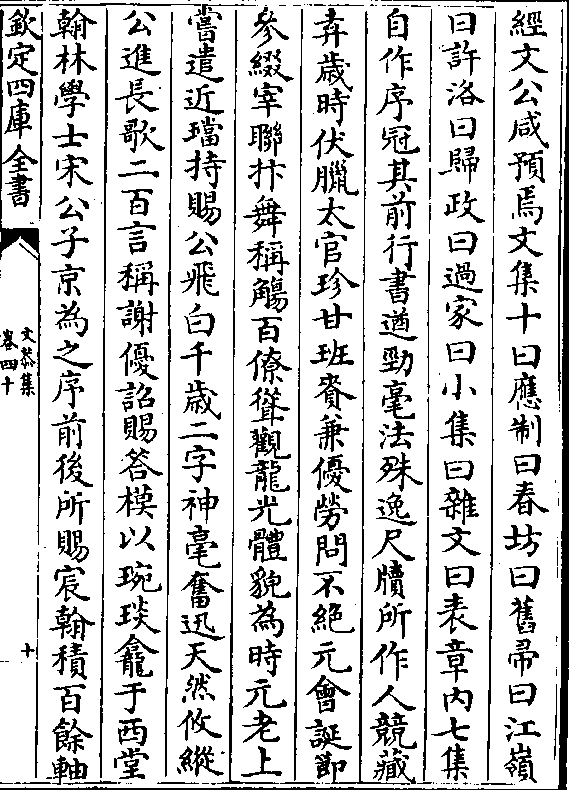 經文公咸預焉文集十曰應制曰春坊曰舊帚曰江嶺
曰許洛曰歸政曰過家曰小集曰雜文曰表章内七集
自作序冠其前行書遒勁毫法殊逸尺牘所作人競藏
弆歲時伏臘太官珍甘班賚兼優勞問不絶元會誕節
參綴宰聯抃舞稱觴百僚聳觀龍光體貌為時元老上
嘗遣近璫持賜公飛白千歲二字神毫奮迅天然攸縱
公進長歌二百言稱謝優詔賜答模以琬琰龕于西堂
翰林學士宋公子京為之序前後所賜宸翰積百餘軸
欽定四庫全書
文恭集
卷四十
十